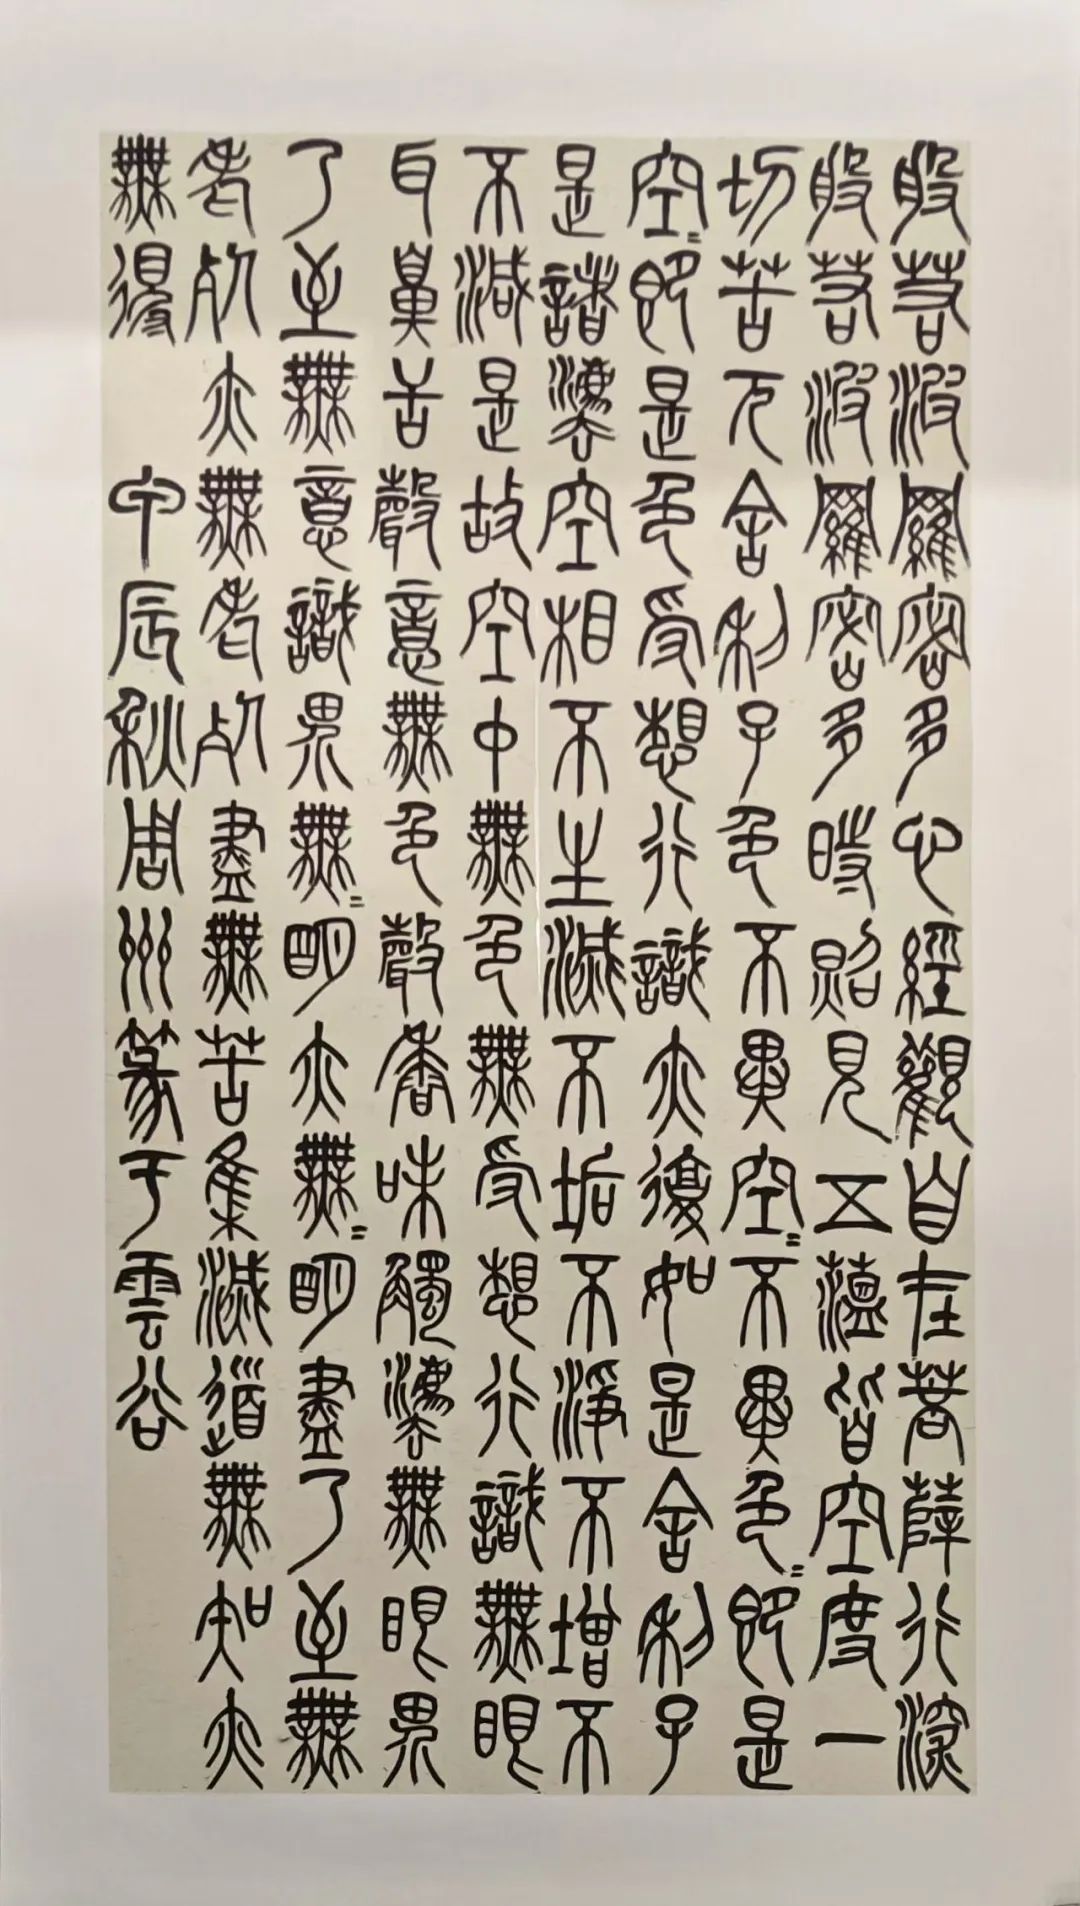 般若波羅密多心經觀自在菩薩行深
般若波羅密多時照見五蘊皆空度一
切苦厄舍利子色不異空〻不異色〻即是
空〻即是色受想行識亦復如是舍利子
是諸灋空相不生滅不垢不淨不增不
不減是故空中無色無受想行識無眼
耳鼻舌聲意無色聲香味觸灋無眼界
乃至無意識界無〻明亦無〻明盡乃至無
老死亦無老死盡無苦集滅道無知亦
無得 甲辰秋周州篆于雲谷